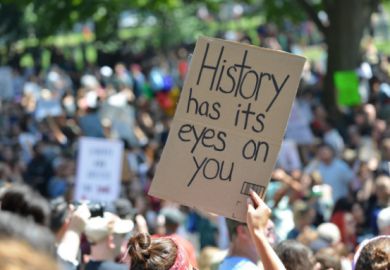 History
has its
eyes on
you